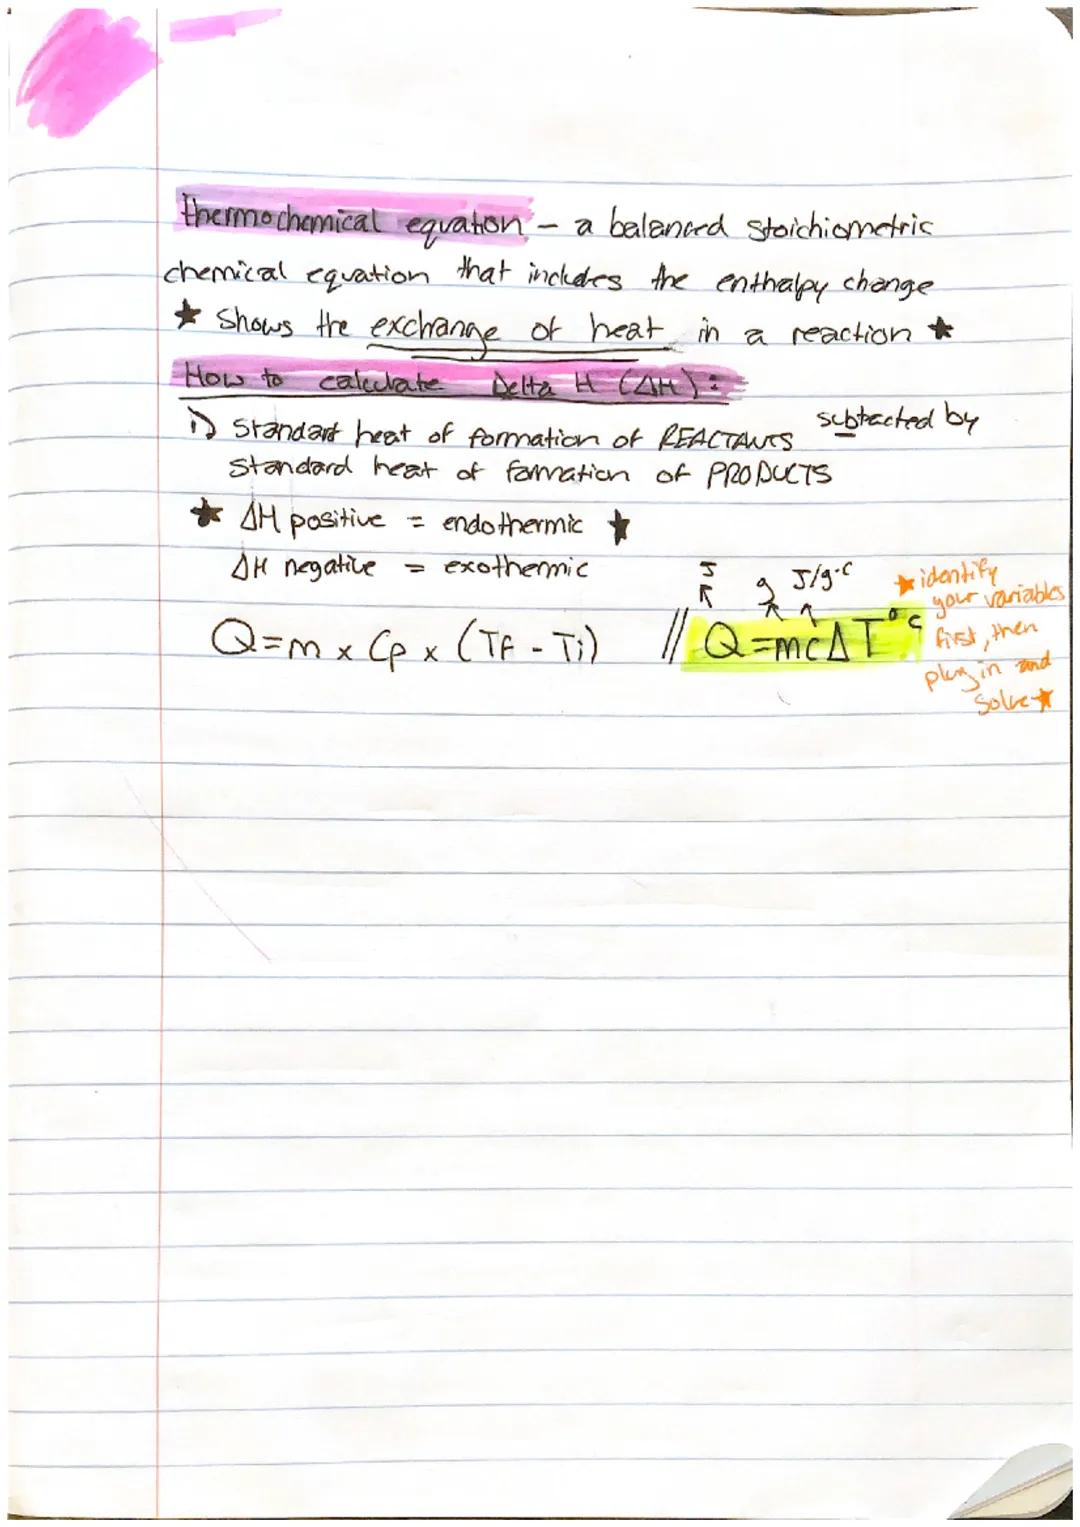 thermochemical equation – a balanced stoichiometric
chemical equation that includes the enthalpy change
★ Shows the exchange of heat in a reaction ★
How to calculate Delta H (ΔH):
1) Standard heat of formation of REACTANTS subtracted by
Standard heat of formation of PRODUCTS
★ ΔH positive = endothermic ★
ΔH negative = exothermic
J g J/g·C
Q=m x Cp x (Tf - Ti) // Q=mcΔT °C
★ identify
your variables
first, then
plug in and
solve ★